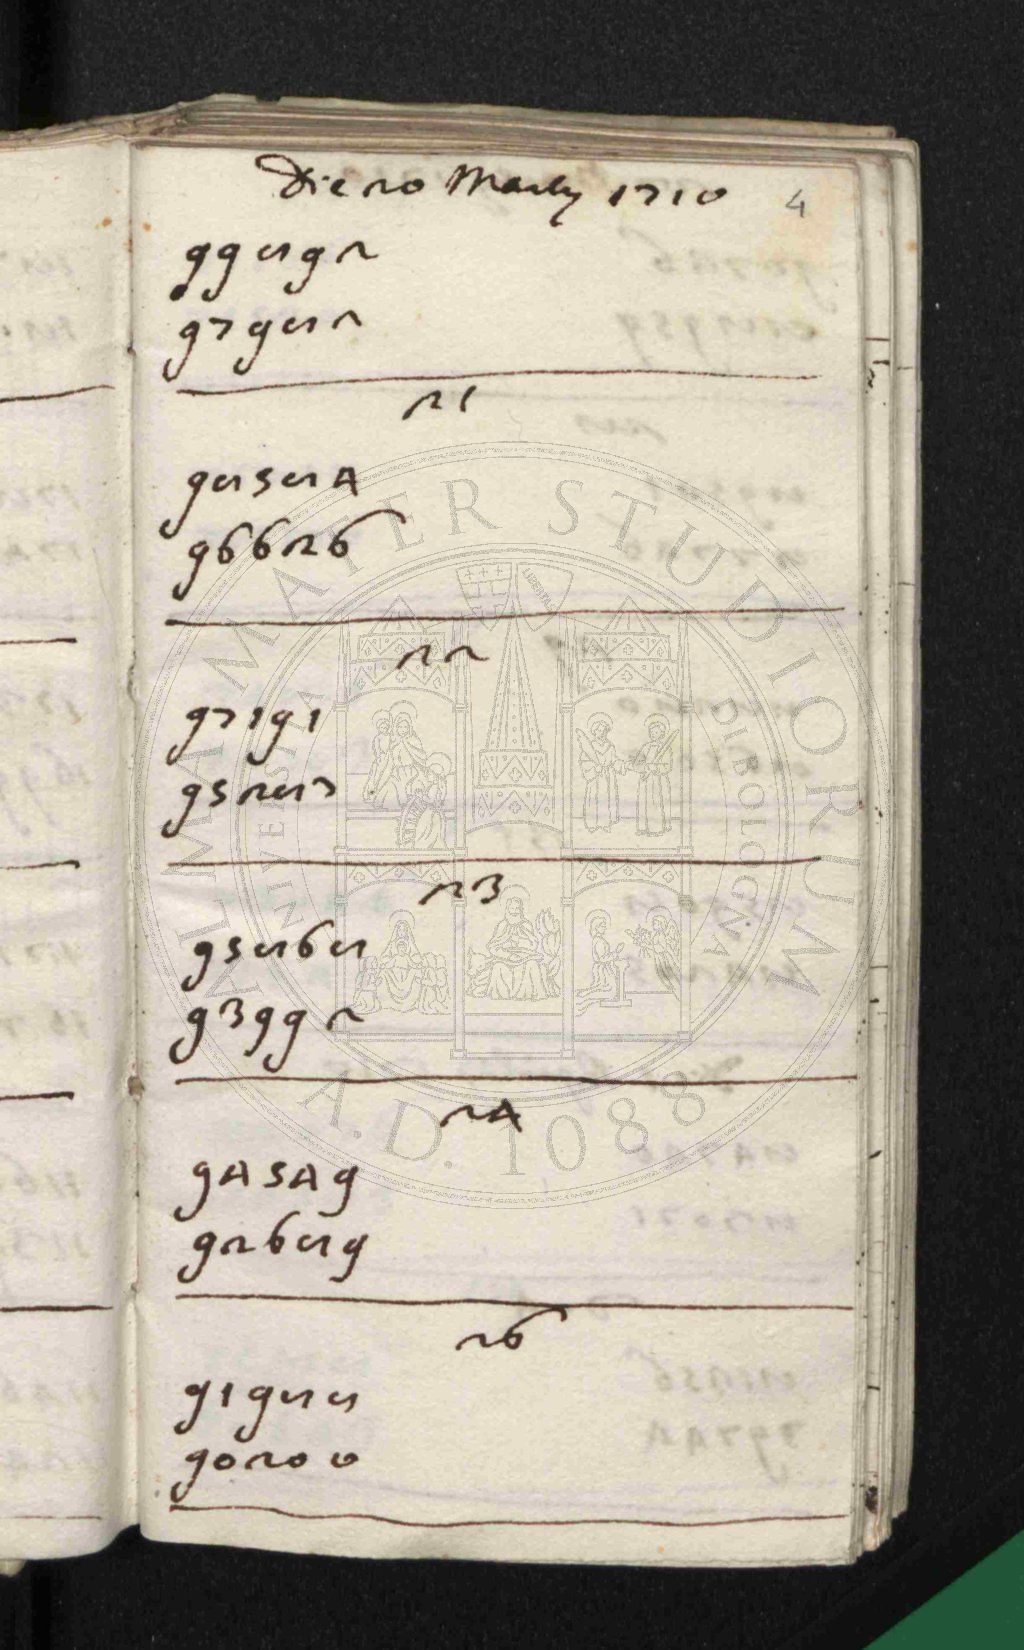 Die 20 Martij 1710
4
99892
97982
21
98584
96626
22
97191
95287
23
95868
93992
24
94549
92689
26
91988
90200
ALMA MATER STUDIORUM
UNIVERSITÀ DI BOLOGNA
A.D. 1088